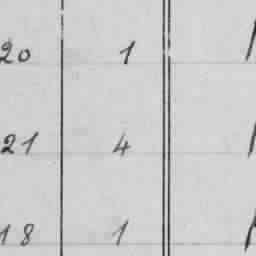 20 1
21 4
18 1